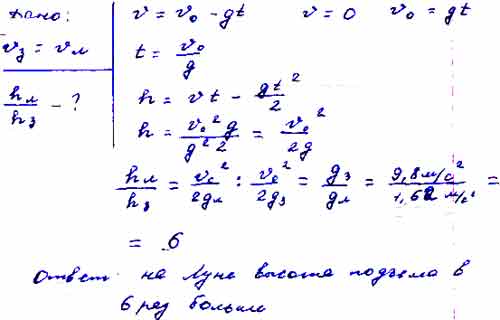 Дано:
v = v₀ - gt    v = 0    v₀ = gt
vз = vл
t = v₀/g
hл/hз - ?
h = vt - gt²/2
h = v₀²g/g²2 = v₀²/2g
hл/hз = v₀²/2gл : v₀²/2gз = gз/gл = 9,8 м/с²/1,62 м/с² =
= 6
Ответ: на Луне высота подъема в
6 раз больше